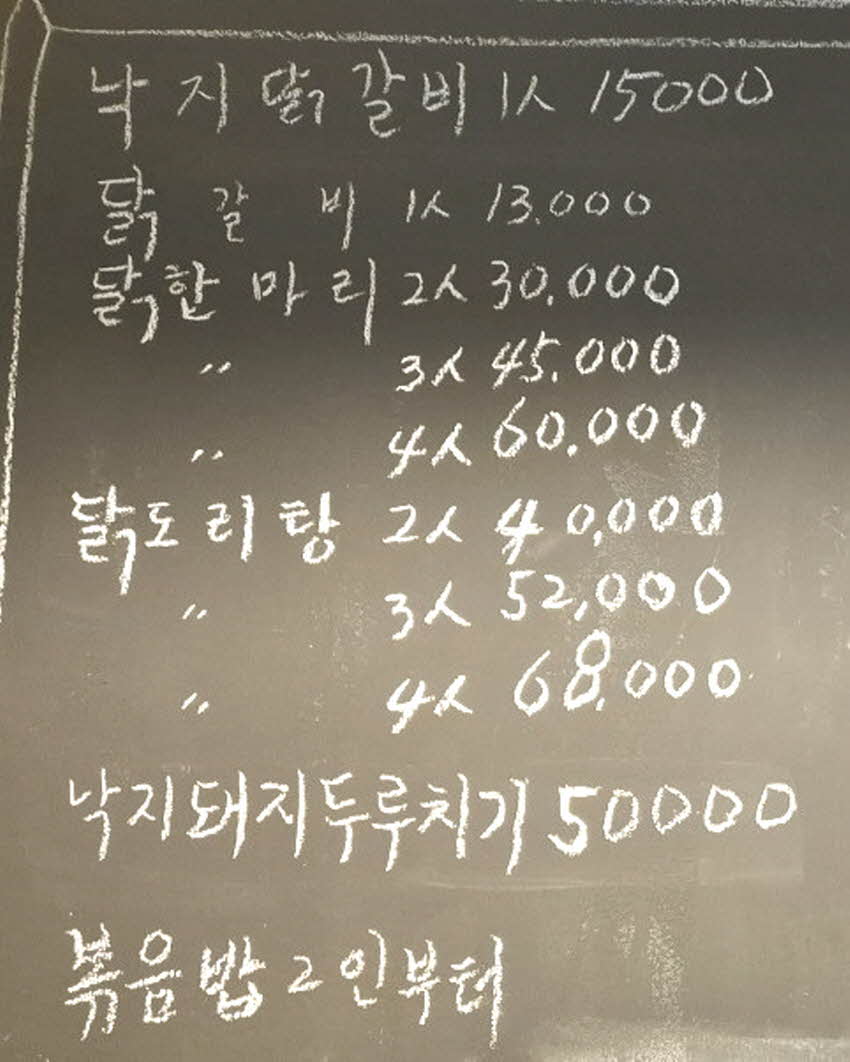 낙지닭갈비 1人 15000
닭갈비 1人 13.000
닭한마리 2人 30.000
〃 3人 45.000
〃 4人 60.000
닭도리탕 2人 40,000
〃 3人 52,000
〃 4人 68,000
낙지돼지두루치기 50000
볶음밥 2인부터